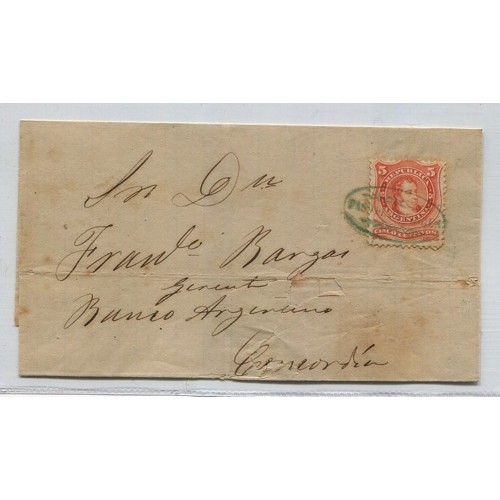 Sn Dn
Franco Bargas
Gerente
Banco Argentino
Concordia
5 REPUBLICA 5
ARGENTINA
CINCO CENTAVOS